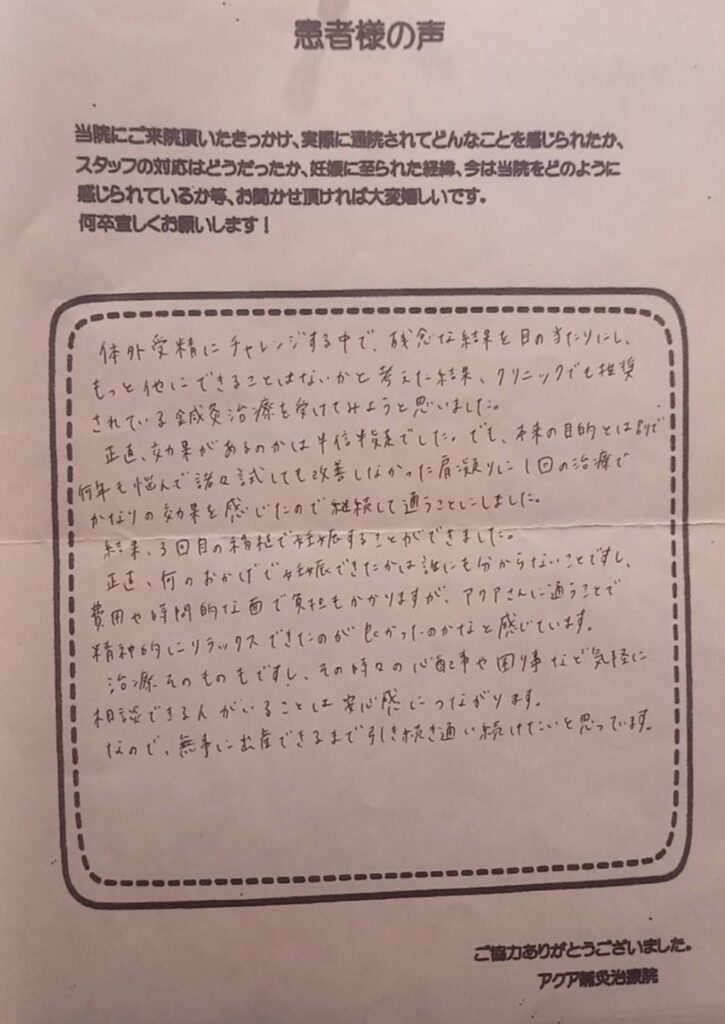 患者様の声
当院にご来院頂いたきっかけ、実際に通院されてどんなことを感じられたか、
スタッフの対応はどうだったか、妊娠に至られた経緯、今は当院をどのように
感じられているか等、お聞かせ頂ければ大変嬉しいです。
何卒宜しくお願いします！
体外受精にチャレンジする中で、残念な結果を目の当たりにし、
もっと他にできることはないかと考えた結果、クリニックでも推奨
されている鍼灸治療を受けてみようと思いました。
正直、効果があるのかは半信半疑でした。でも、本来の目的とは別で
何年も悩んで諸々試しても改善しなかった肩凝りに1回の治療で
かなりの効果を感じたので継続して通うことにしました。
結果、3回目の移植で妊娠することができました。
正直、何のおかげで妊娠できたかは誰にも分からないことですし、
費用や時間的な面で負担もかかりますが、アクアさんに通うことで
精神的にリラックスできたのが良かったのかなと感じています。
治療そのものもですし、その時々の心配事や困り事など気軽に
相談できる人がいることは安心感につながります。
なので、無事に出産できるまで引き続き通い続けたいと思っています。
ご協力ありがとうございました。
アクア鍼灸治療院